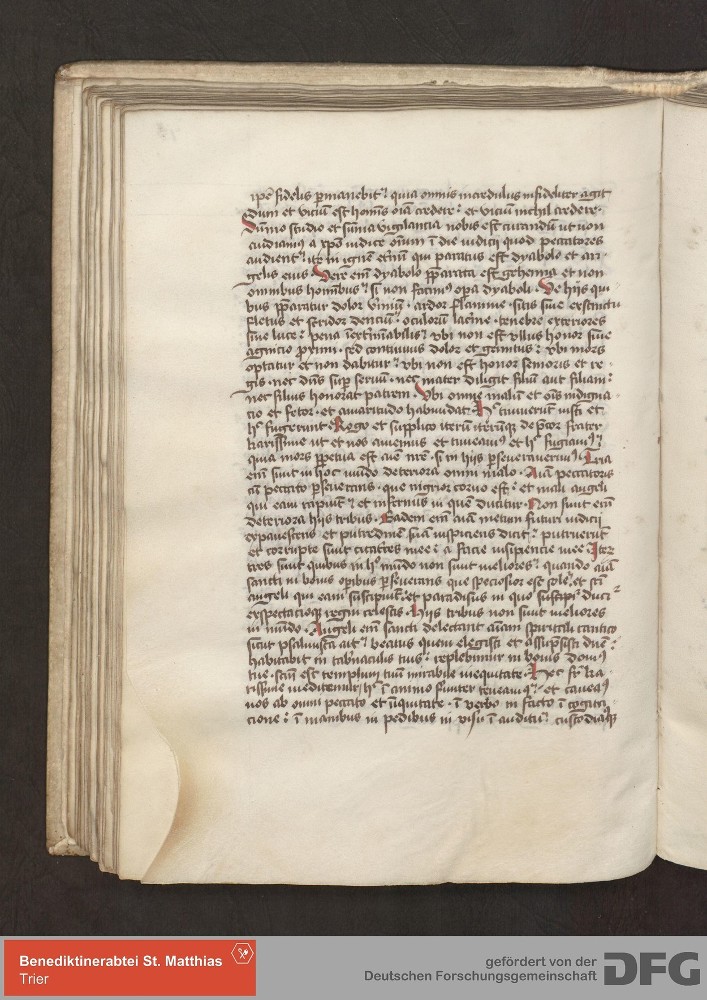 ip̄e fidelis ꝑmanebit quia omnis incredulus infideliter agit
dum et viciū est homīs oīa credere : et viciū nichil credere ·
Sūmo studio et sūma vigilancia nobis est curandū ut non
audiamus a xp̄o iudice oīnum ī die iudicii quod peccatores
audient ite in ignē et̄nū qui paratus est dyabolo et an-
gelis eius · Vere em̄ dyabolo p̄parata est gehenna et non
omnibus hominibus si non facimꝰ opa dyaboli · De hijs qui
bus p̄paratur dolor · ardor flamme · sitis sine
fletus et stridor denciū · oculorū lacrīe · tenebre exteriores
sine luce : pena vbi non est vllus honor sine
agnicio proximi · sed continuus dolor et gemitus : vbi mors
optatur et non dabitur vbi non est honor senioris et re-
gis · nec dn̄s suꝑ seruū · nec mater diligit filiū aut filiam :
nec filius honorat patrem · Vbi omne malū et oīs indigna
cio et fetor · et amaritudo habundat · Hͦ timuerūt iusti et
hͦ fugerunt · Rogo et supplico iterū iterūqꝫ frater
karissime ut et nos amemus et timeamꝰ et hͦ fugiamꝰ
quia mors ꝑpetua est aīe nr̄e · si in hijs ꝑseuerauerimꝰ · Tria
em̄ sunt in hoc mūdo deteriora omni malo · Aīa peccatoris
in peccato ꝑseuerans · que nigrior coruo est : et mali angeli
qui eam rapiūt et infernus in quē ducitur · Non sunt em̄
deteriora hijs tribus · Eadem em̄ aīa metum futuri iudicii
expauescens et putredinē suā inspiciens dicit : putruerūt
et corrupte sunt cicatrices mee : a facie insipiencie mee · Iteꝝ
tres sunt quibus in hͦ mūdo non sunt meliores quando aīa
sancti in bonis opibus ꝑseuerans que speciosior est sole et sc̄i
angeli qui eam suscipiūt : et paradisus in quo suscipit᷑ duci-
regni celestis · Hijs tribus non sunt meliores
in mūdo · Angeli em̄ sancti delectant aīam spirituali cantico
sicut psalmista ait beatus quem elegisti et assūpsisti dn̄e :
habitabit in tab̄naculis tuis : replebimur in bonis domꝰ
tue · sc̄m est templum tuū mirabile in equitate · Hec fr̄ ka-
rissime meditemur hͦ ī animo firmiter teneamꝰ · et caueaꝰ
nos ab omni peccato et iniquitate · ī verbo in facto ī cogita
cione : ī manibus in pedibus in visu ī auditu custodiaꝰqꝫ
Benediktinerabtei St. Matthias
Trier
gefördert von der
Deutschen Forschungsgemeinschaft
DFG